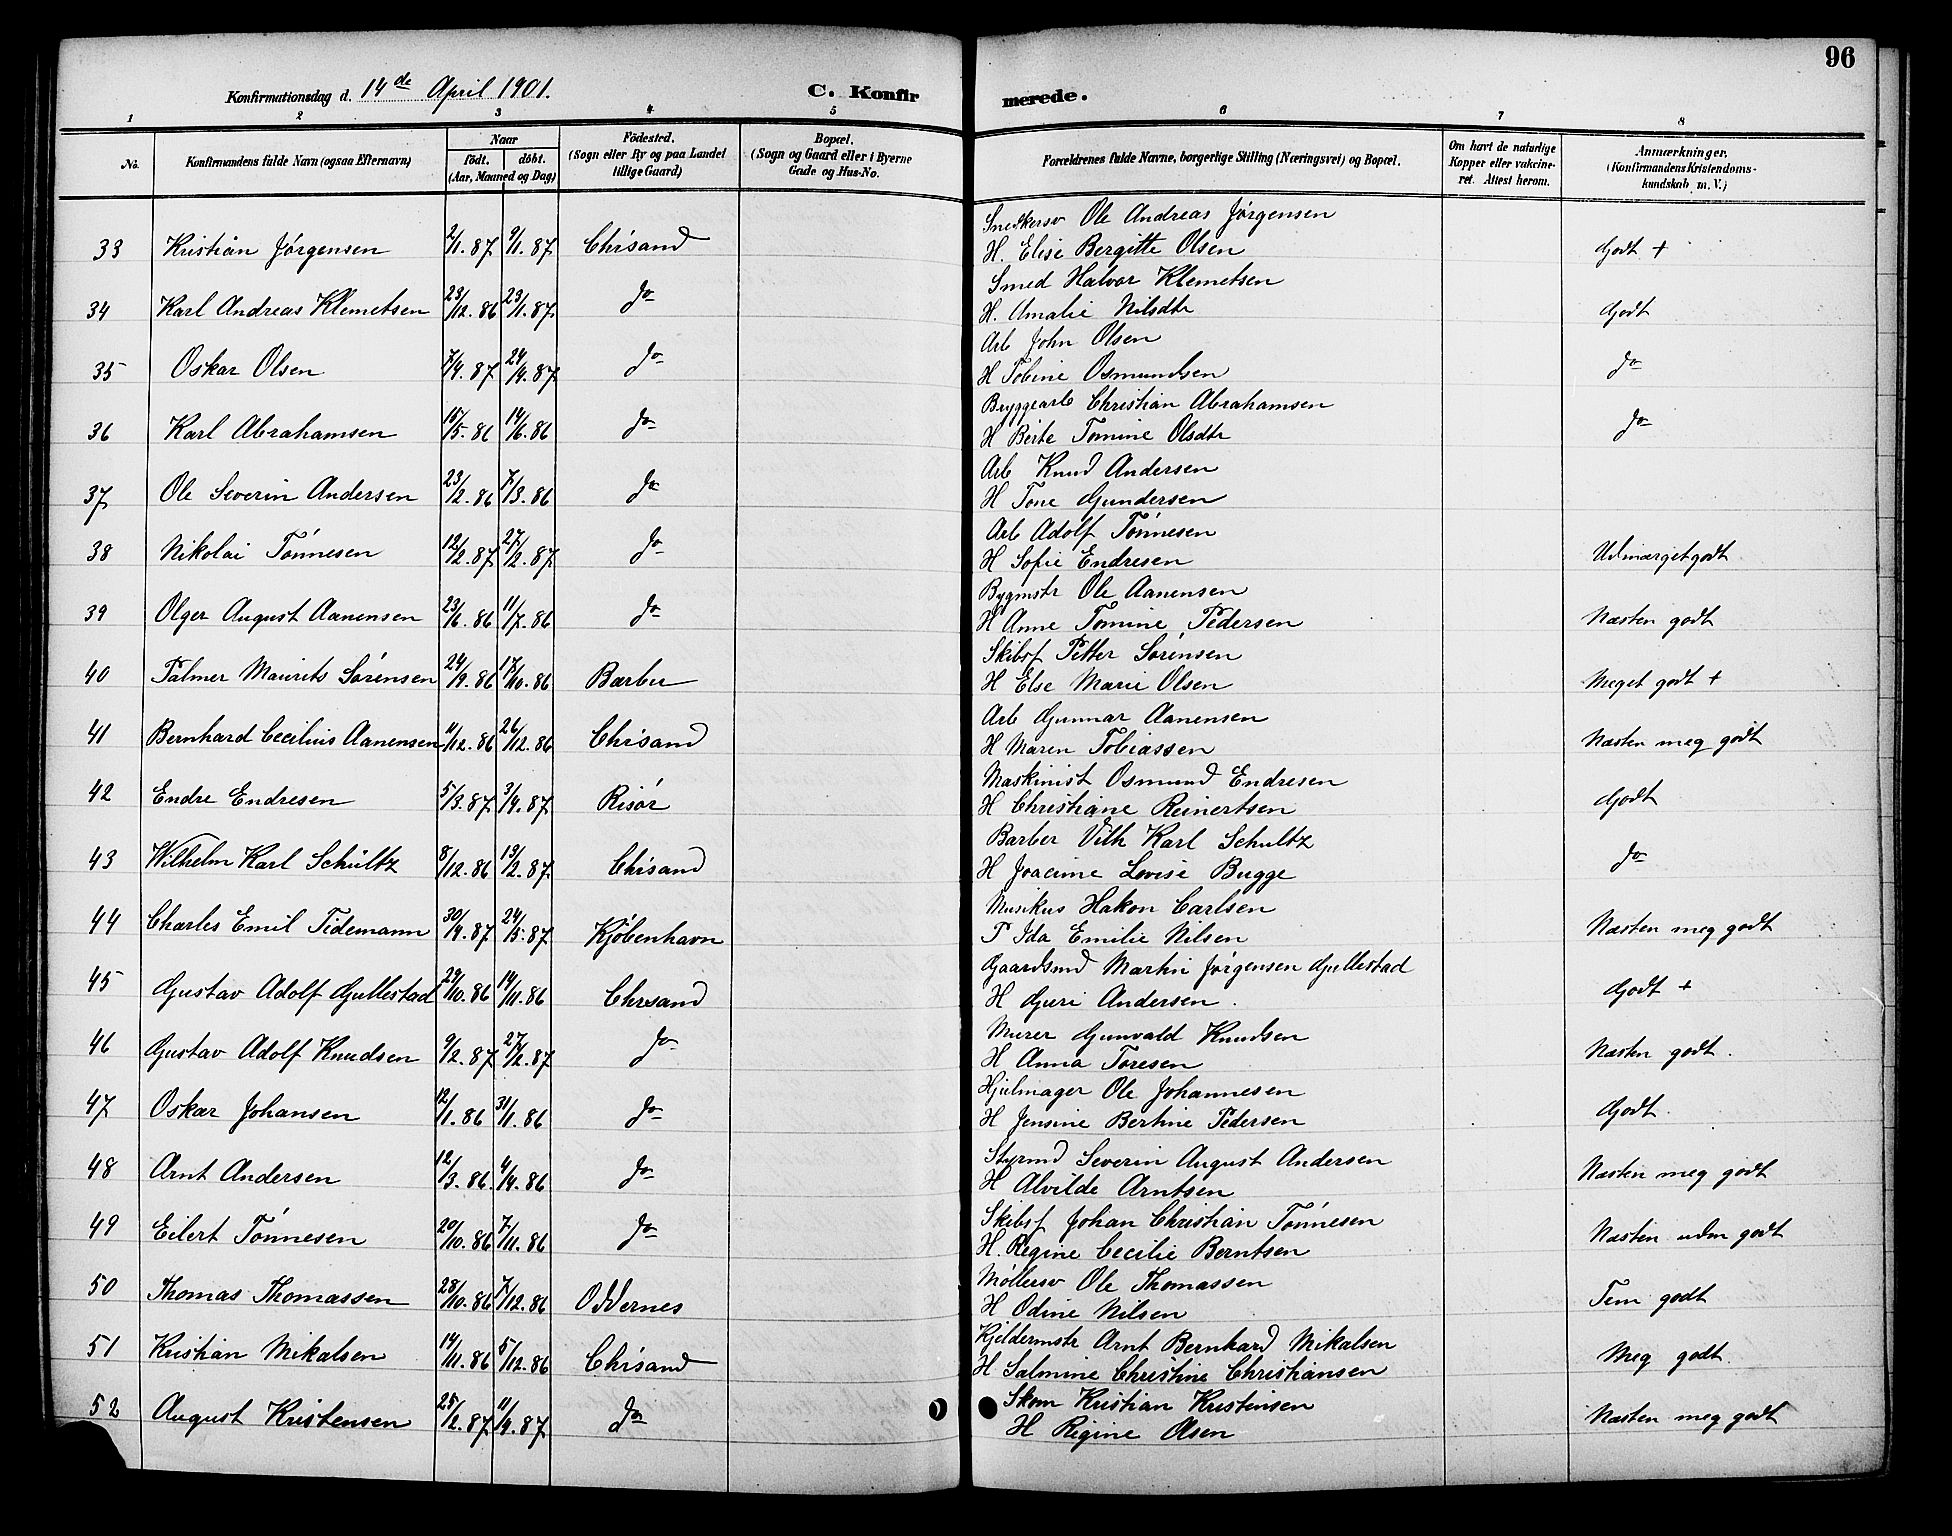 96
Konfirmationsdag d. 14de April 1901.
C. Konfirmerede.
1 2 3 4 5 6 7 8
No.
Konfirmandens fulde Navn (ogsaa Efternavn)
Naar
født. døbt.
(Aar, Maaned og Dag)
Fødested.
(Sogn eller By og paa Landet
tillige Gaard)
Bopæl.
(Sogn og Gaard eller i Byerne
Gade og Hus-No.
Forældrenes fulde Navne, borgerlige Stilling (Næringsvei) og Bopæl.
Om havt de naturlige
Kopper eller vakcine-
ret. Attest herom.
Anmærkninger.
(Konfirmandens Kristendoms-
kundskab m. V.)
Snedkersv Ole Andreas Jørgensen
33 Kristian Jørgensen 2/1.87 9/1.87 Chrsand H. Elise Bergitte Olsen Godt +
Smed Halvor Klemetsen
34 Karl Andreas Klemetsen 23/12.86 23/1.87. Do H. Amalie Nilsdtr Godt
Arb John Olsen
35 Oskar Olsen 7/4.87 24/4.87 Do H Tobine Osmundsen Do
Bryggearb Christian Abrahamsen
36 Karl Abrahamsen 15/5.86 14/6.86 Do H Berte Tomine Olsdtr Do
Arb Knud Andersen
37 Ole Severin Andersen 23/2.86 7/3.86 Do H Tone Gundersen
Arb Adolf Tønnesen
38 Nikolai Tønnesen 12/2.87 27/2.87. Do H Sofie Endresen Udmærgetgodt
Bygmstr Ole Aanensen
39 Olger August Aanensen 23/6.86 11/7.86 Do H Anne Tomine Pedersen Næsten godt
Skibsf Petter Sørensen
40 Palmer Maurits Sørensen 24/9.86 17/10.86 Barber H Else Marie Olsen Meget godt +
Arb Gunnar Aanensen
41 Bernhard Cecilius Aanensen 4/12.86 26/12.86 Chrsand H Maren Tobiassen Næsten meg godt
Maskinist Osmund Endresen
42 Endre Endresen 5/3.87 3/4.87 Risør H Christiane Reinertsen Godt
Barber Vilh Karl Schultz
43 Wilhelm Karl Schültz 8/12.86 13/2.87. Chrsand H Joacime Lovise Bugge Do
Musikus Hakon Carlsen
44 Charles Emil Tidemann 30/4.87 24/5.87 Kjøbenhavn P Ida Emilie Nilsen Næsten meg godt
Gaardsmd Martin Jørgensen Gullestad
45 Gustav Adolf Gullestad 29/10.86 14/11.86 Chrsand H Guri Andersen. Godt +
Murer Gunvald Knudsen
46 Gustav Adolf Knudsen 9/2.87 27/2.87 Do H Anna Toresen Næsten godt.
Hjulmager Ole Johannesen
47 Oskar Johansen 12/1.86 31/1.86 Do H Jensine Bertine Pedersen Godt.
Styrmd Severin August Andersen
48 Arnt Andersen 12/3.86. 4/4.86 Do H Alvilde Arntsen Næsten meg godt
Skibsf Johan Christian Tønnesen
49 Eilert Tønnesen 20/10.86 7/11.86 Do H. Regine Cecilie Berntsen Næsten udm godt
Møllersv Ole Thomassen
50 Thomas Thomassen 28/10.86 7/12.86 Oddernes H Odine Nilsen Tem godt
Kjeldermstr Arnt Bernhard Mikalsen
51 Kristian Mikalsen 14/11.86 5/12.86 Chrsand H Salmine Christine Christiansen Meg godt.
Skom Kristian Kristensen
52 August Kristensen 25/2.87 11/4.87 Do H Regine Olsen Næsten meg godt